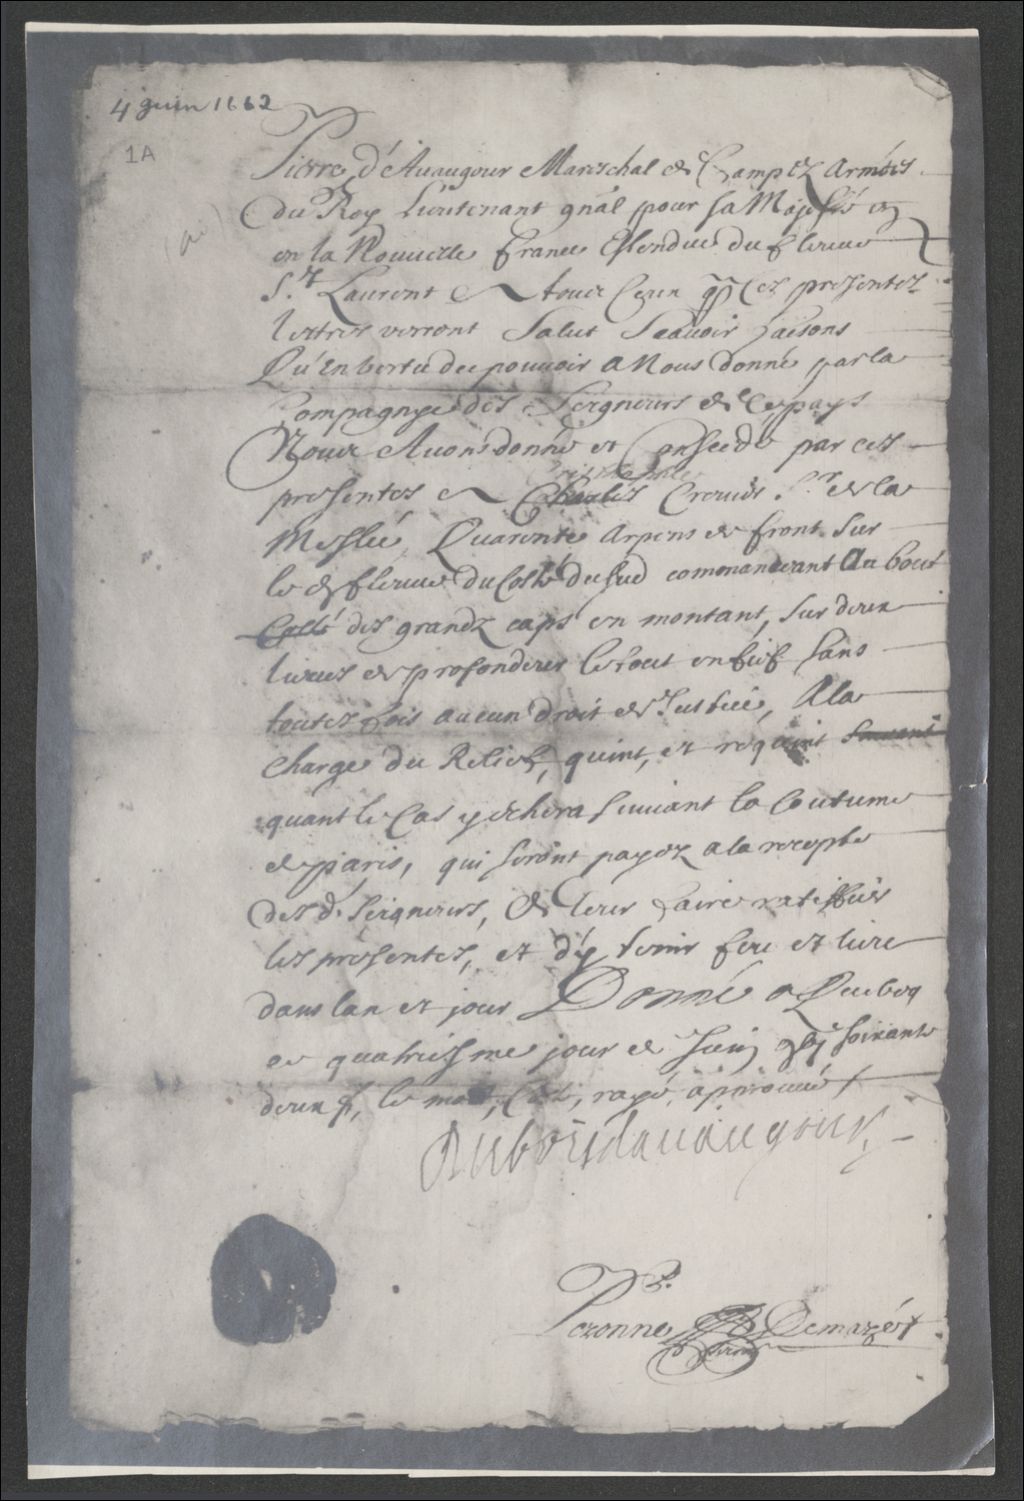 4 Juin 1662
1A
Pierre d'Auaugour Mareschal de Camp ez Armées
du Roy Lieutenant gñal pour sa Majesté
en la Nouuelle France Estendue du fleuue
St. Laurent A tous Ceux q ces presentes
lettres verront Salut Scauoir faisons
Qu'En vertu du pouuoir A Nous donné par la
Compagnye des Seigneurs de ce pays
Nous Auons donné et Conceddé par ces
presentes A Charles Creuier Sr. de la
Meslée, Quarente arpens de front Sur
le d fleuue du Costé du Sud commanceant Au bout
Costé des grandz caps en montant, sur deux
lieues de profondeur le tout en fief sans
toutes fois aucun droit de Justice, A la
charge du Relief, quint, et requint suivant
quant le Cas y echera suiuant la Coutume
de paris, qui seront payez a la recepte
des d. Seigneurs, & leur faire ratiffier
les presentes, et d'y tenir feu et lieu
dans lan et jour Donné a Quebeq
ce quatriesme jour de Juin soixante
deux, le mot, Costé, rayé, approuué
Dubois dauaugour
Peronne Demazé